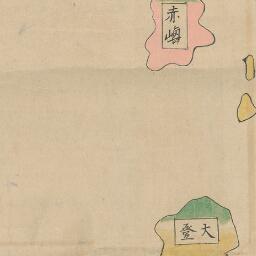 赤嶼
大登